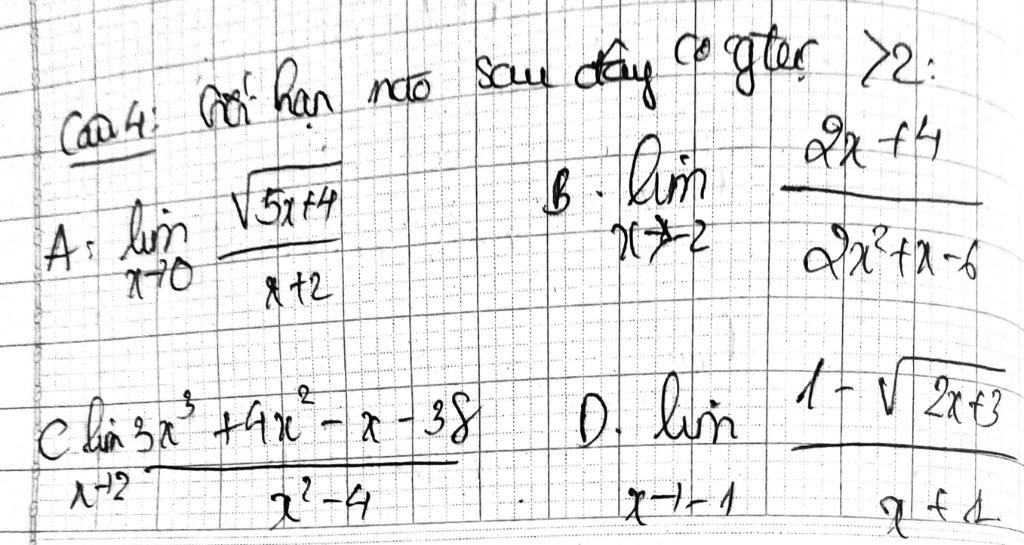 Câu 4: Giới hạn nào sau đây có gtrị >2:
A. lim x→0 √(5x+4) / (x+2) B. lim x→-2 (2x+4) / (2x²+x-6)
C lim x→2 (3x³+4x²-x-38) / (x²-4) D. lim x→-1 (1-√(2x+3)) / (x+1)